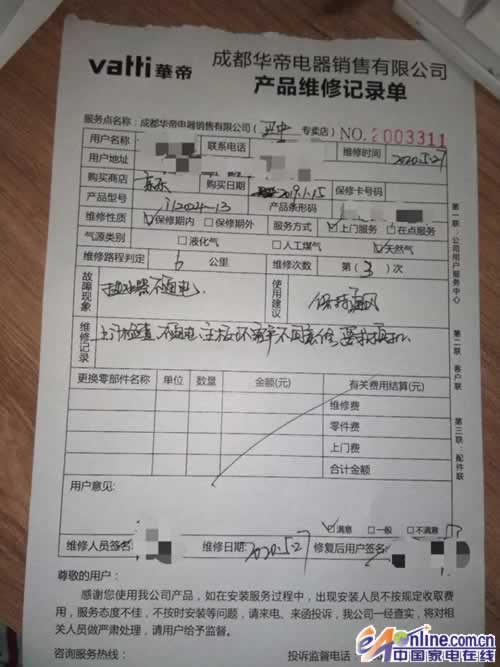 vatti 華帝 成都华帝电器销售有限公司
产品维修记录单
服务点名称：成都华帝电器销售有限公司（ 专卖店） NO.2003311
用户名称 联系电话 维修时间 2020.5.27
用户地址
购买商店 京东 购买日期 2019.1.15 保修卡号码
产品型号 i12024-13 产品条形码
维修性质 保修期内 保修期外 服务方式 上门服务 在点服务
气源类别 液化气 人工煤气 天然气
维修路程判定 6 公里 维修次数 第（3）次
故障现象 热水器不通电 使用建议 保持通风
维修记录 上门检查,不通电,主板坏 不同意 要求
更换零部件名称 单位 数量 金额(元) 有关费用结算(元)
维修费
零件费
上门费
合计金额
用户意见：
满意 一般 不满意
维修人员签名： 维修日期：2020.5.27 修复后用户签名：
尊敬的用户：
感谢您使用我公司产品，如在安装服务过程中，出现安装人员不按规定收取费
用，服务态度不佳，不按时安装等问题，请来电、来函投诉，我公司一经查实，将对相
关人员做严肃处理，请用户给予监督。
咨询服务热线： 投诉监督电话：
第一联：公司用户服务中心
第二联：客户联
第三联：配件联
online.com.cn
中国家电在线